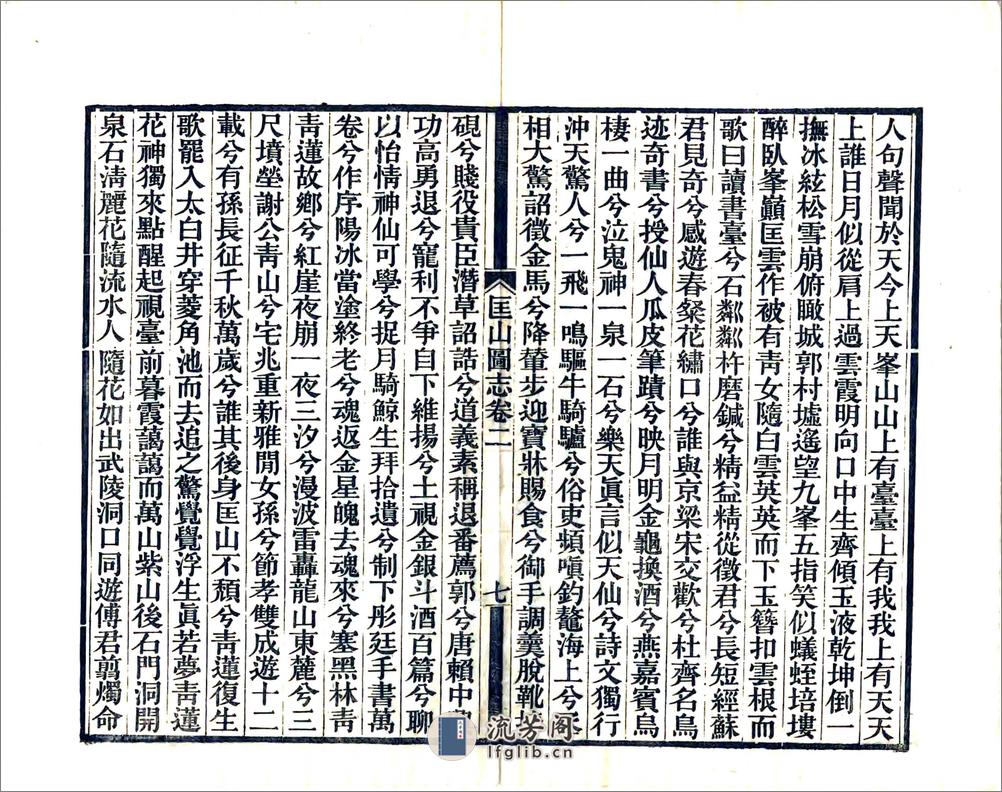 人句聲聞於天今上天峯山山上有臺臺上有我我上有天天
上誰日月似從肩上過雲霞明向口中生齊傾玉液乾坤倒一
撫冰絃松雪崩俯瞰城郭村墟遙望九峯五指笑似蟻蛭培塿
醉臥峯巔匡雲作被有靑女隨白雲英英而下玉簪扣雲根而
歌曰讀書臺兮石粼粼杵磨鍼兮精益精從徵君兮長短經蘇
君見奇兮感遊春粲花繡口兮誰與京梁宋交歡兮杜齊名鳥
迹奇書兮授仙人瓜皮筆蹟兮映月明金龜換酒兮燕嘉賓烏
棲一曲兮泣鬼神一泉一石兮樂天眞言似天仙兮詩文獨行
沖天驚人兮一飛一鳴驅牛騎驢兮俗吏頻嗔釣鼇海上兮
相大驚詔徵金馬兮降輦步迎寶牀賜食兮御手調羹脫靴
匡山圖志卷二
七
硯兮賤役貴臣潛草詔誥兮道義素稱退番薦郭兮唐賴中
功高勇退兮寵利不爭自下維揚兮土視金銀斗酒百篇兮聊
以怡情神仙可學兮捉月騎鯨生拜拾遺兮制下彤廷手書萬
卷兮作序陽冰當塗終老兮魂返金星魄去魂來兮塞黑林靑
靑蓮故鄉兮紅崖夜崩一夜三汐兮漫波雷轟龍山東麓兮三
尺墳塋謝公靑山兮宅兆重新雅閒女孫兮節孝雙成遊十二
載兮有孫長征千秋萬歲兮誰其後身匡山不頹兮靑蓮復生
歌罷入太白井穿菱角池而去追之驚覺覺浮生眞若夢靑蓮
花神獨來點醒起視臺前暮霞藹藹而萬山紫山後石門洞開
泉石淸麗花隨流水人隨花如出武陵洞口同遊傅君翦燭命
流芳阁
lfglib.cn